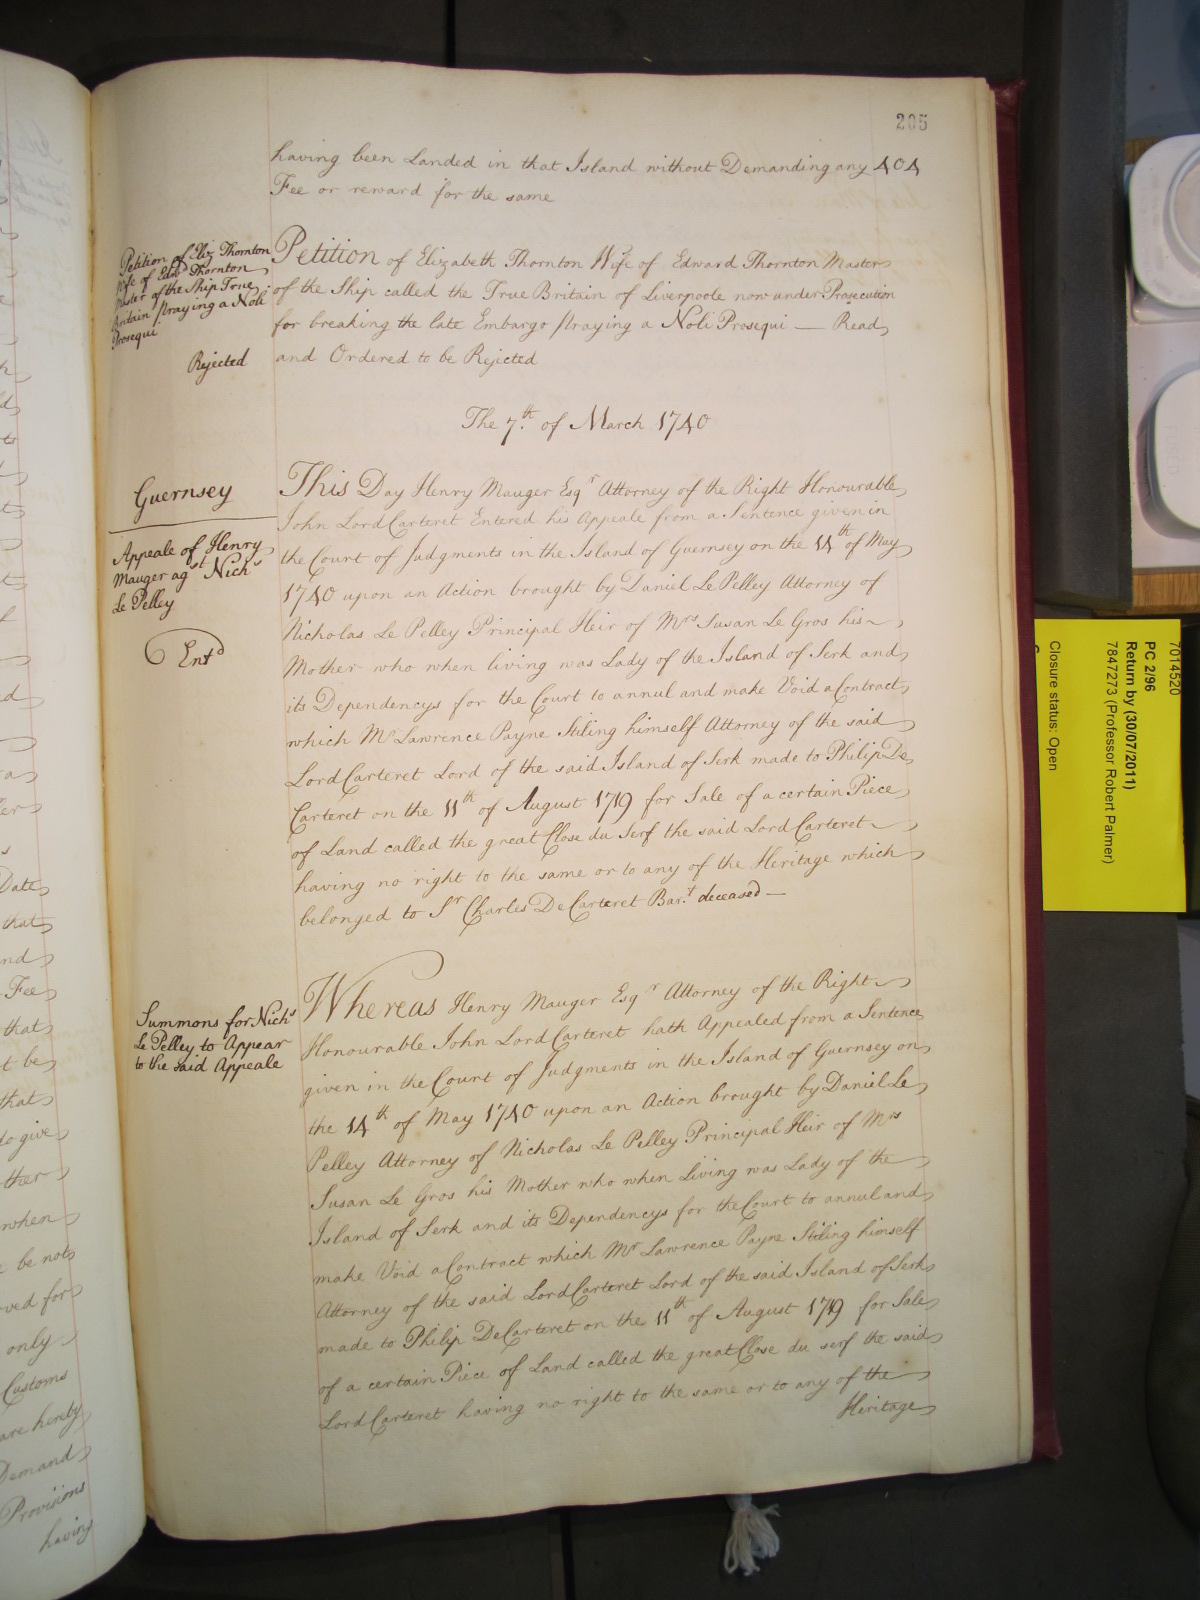 205
having been Landed in that Island without Demanding any 404
Fee or reward for the same
Petition of Eliz Thornton
Wife of Edwd Thornton
Master of the Ship True
Britain praying a Noli
Prosequi
Rejected
Petition of Elizabeth Thornton Wife of Edward Thornton Master
of the Ship called the True Britain of Liverpoole now under Prosecution
for breaking the late Embargo praying a Noli Prosequi — Read
and Ordered to be Rejected
The 7th. of March 1740
Guernsey
Appeale of Henry
Mauger agst Nichs
Le Pelley
Entd
This Day Henry Mauger Esqr Attorney of the Right Honourable
John Lord Carteret Entered his Appeale from a Sentence given in
the Court of Judgments in the Island of Guernsey on the 14th of May
1740 upon an Action brought by Daniel Le Pelley Attorney of
Nicholas Le Pelley Principal Heir of Mrs Susan Le Gros his
Mother who when living was Lady of the Island of Serk and
its Dependencys for the Court to annul and make Void a Contract
which Mr Lawrence Payne Stiling himself Attorney of the said
Lord Carteret Lord of the said Island of Serk made to Philip De
Carteret on the 11th of August 1719 for Sale of a certain Piece
of Land called the great Close du Serf the said Lord Carteret
having no right to the same or to any of the Heritage which
belonged to Sr Charles De Carteret Bart. deceased —
Summons for Nichs
Le Pelley to Appear
to the said Appeale
Whereas Henry Mauger Esqr Attorney of the Right
Honourable John Lord Carteret hath Appealed from a Sentence
given in the Court of Judgments in the Island of Guernsey on
the 14th of May 1740 upon an Action brought by Daniel Le
Pelley Attorney of Nicholas Le Pelley Principal Heir of Mrs
Susan Le Gros his Mother who when Living was Lady of the
Island of Serk and its Dependencys for the Court to annul and
make Void a Contract which Mr Lawrence Payne Stiling himself
Attorney of the said Lord Carteret Lord of the said Island of Serk
made to Philip De Carteret on the 11th of August 1719 for Sale
of a certain Piece of Land called the great Close du serf the said
Lord Carteret having no right to the same or to any of the
Heritage
Date
that
and
Fee
that
be
that
to give
when
be not
for
only
Customs
are hereby
Demand
Provisions
having
7014520
PC 2/96
Return by (30/07/2011)
7847273 (Professor Robert Palmer)
Closure status: Open